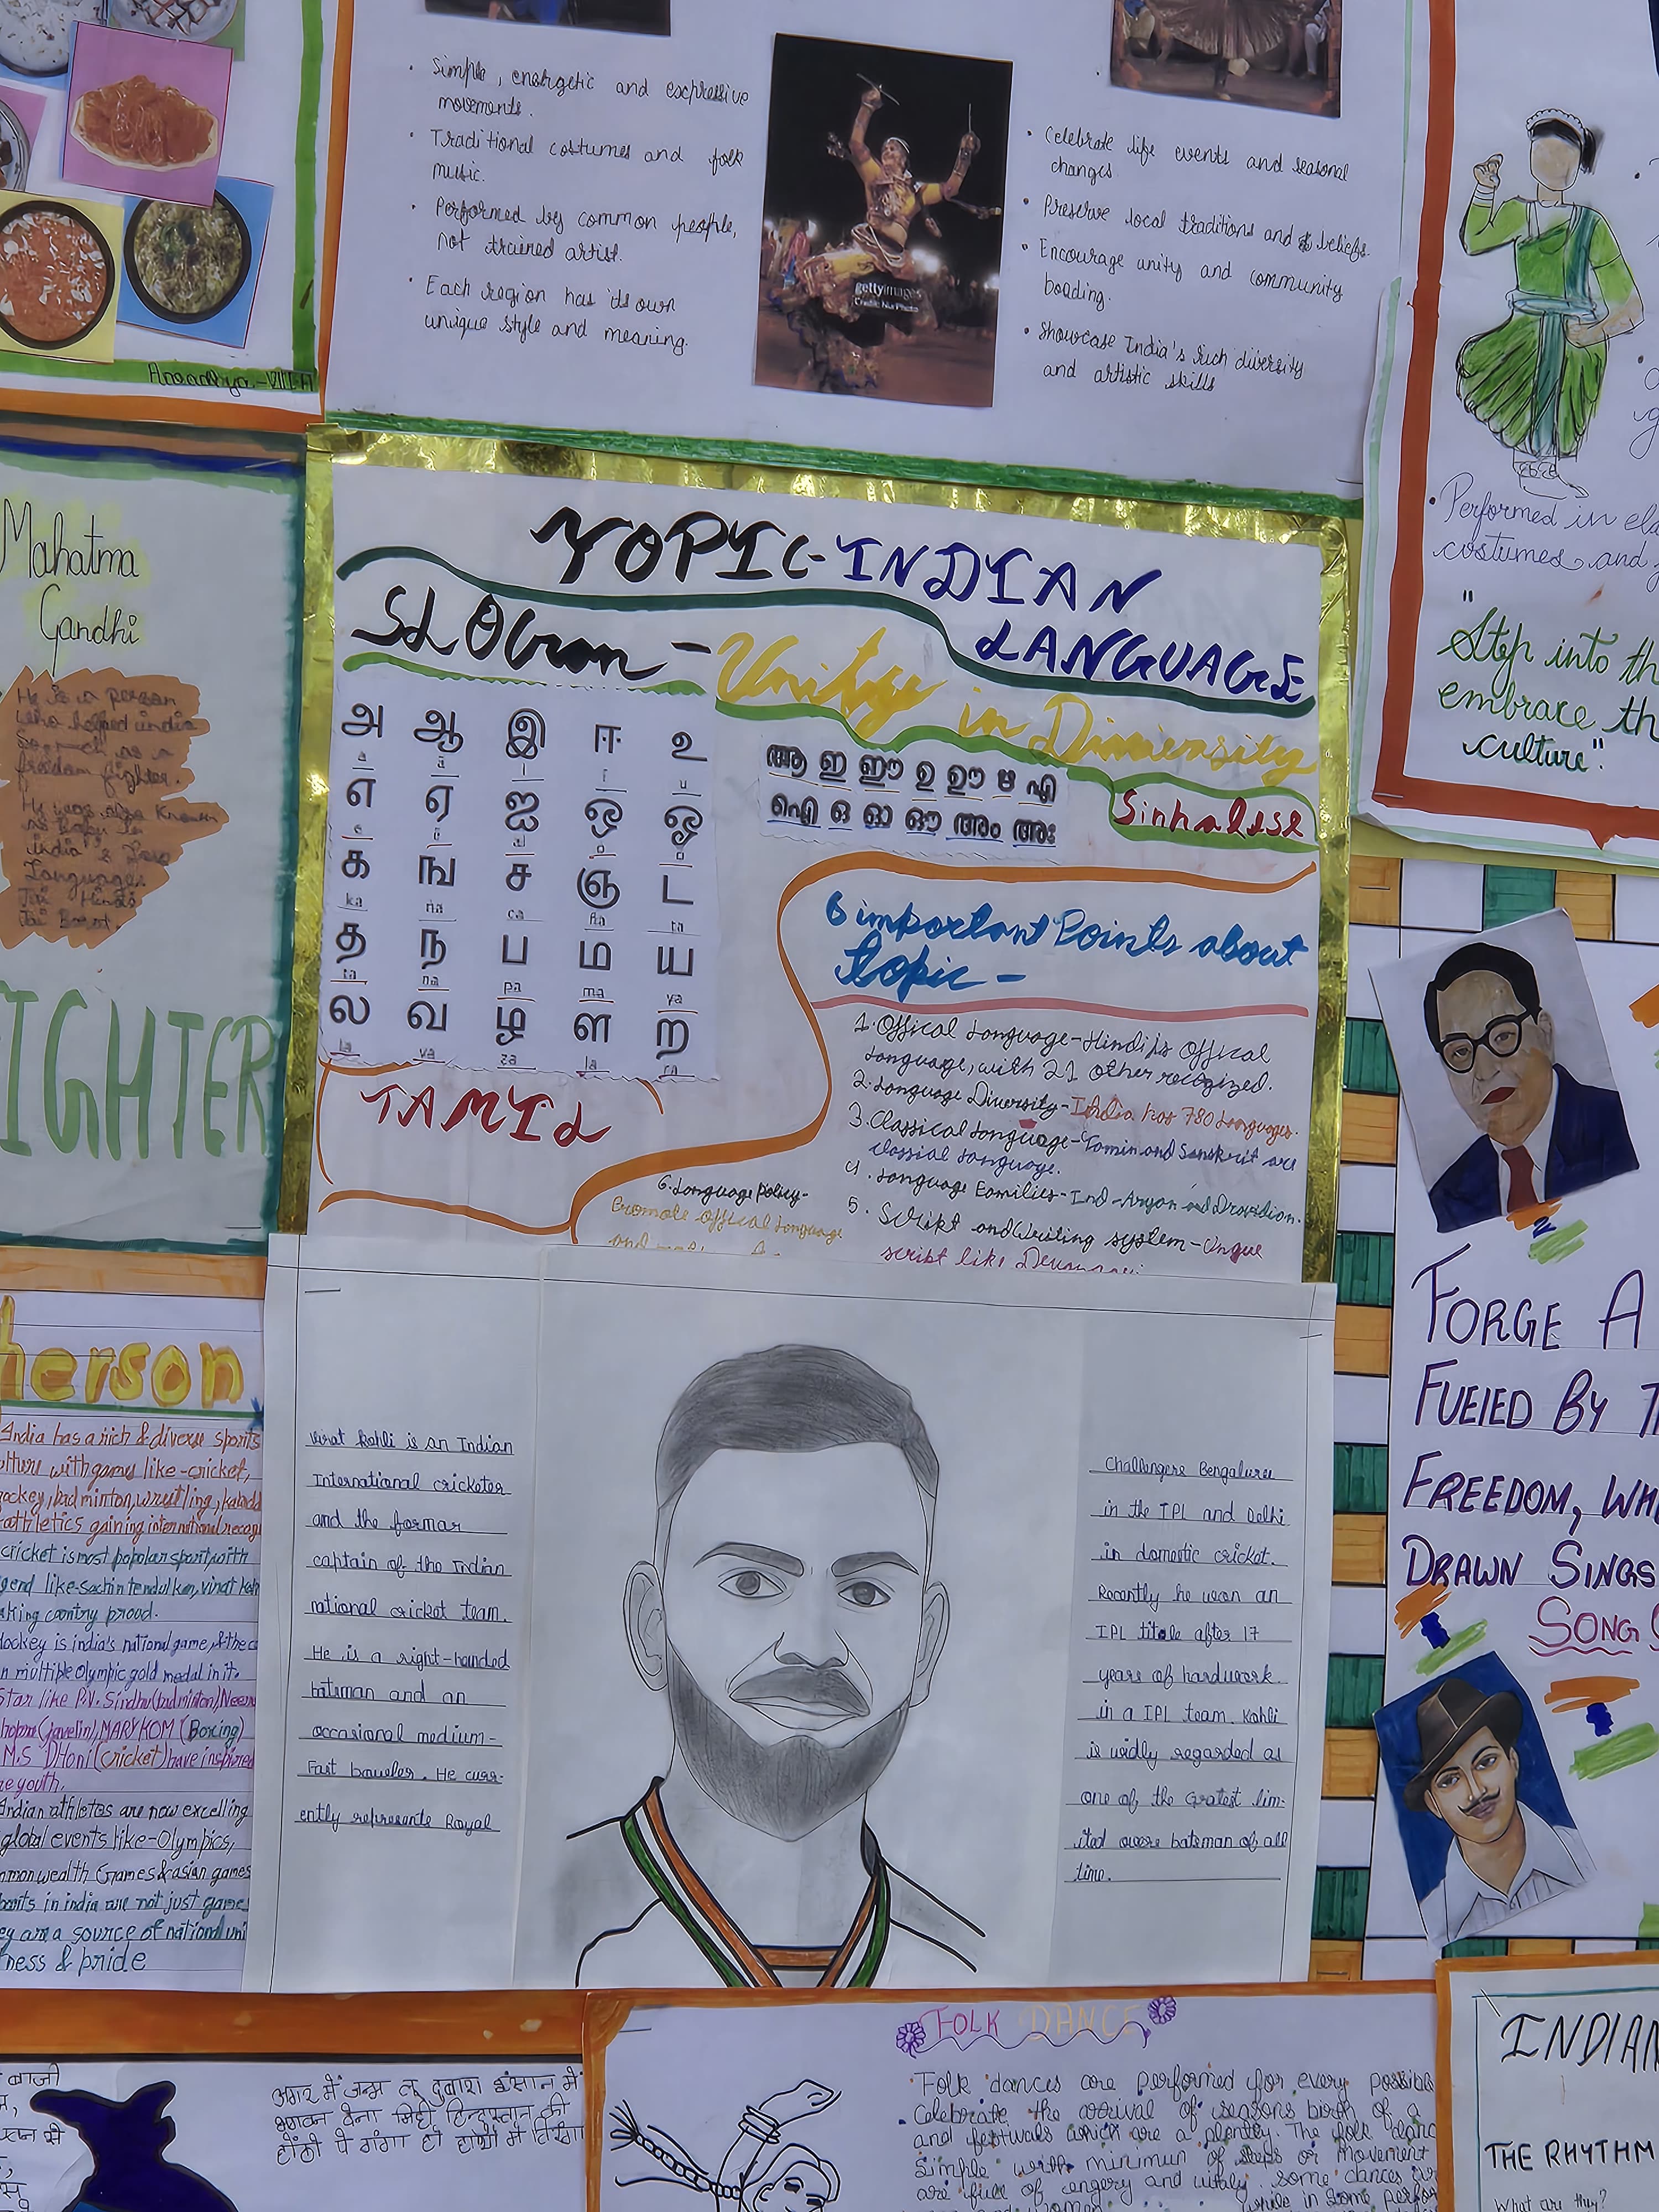 Simple, energetic and expressive
movements.
Traditional costumes and folk
music.
Performed by common people,
not trained artist.
Each region has its own
unique style and meaning.
gettyimages
Credit: NurPhoto
Celebrate life events and seasonal
changes.
Preserve local traditions and beliefs.
Encourage unity and community
boading.
Showcase India's rich diversity
and artistic skills
Aaradhya-VIII A
Performed in ela
costumes, and
"Step into th
embrace th
culture".
Mahatma
Gandhi
He is a person
who helped india
So much as a
freedom fighter.
He was also known
as Bapu in
India's
Language
Jai Hind
Jai Barat.
IGHTER
TOPIC-INDIAN
LANGUAGE
SLOGan - Unitye in Dimensity
அ ஆ இ ஈ உ
a ā i ī u
எ ஏ ஐ ஒ ஓ
க ங ச ஞ ட
ka ṅa ca ña ṭa
த ந ப ம ய
ta na pa ma ya
ல வ ழ ள ற
la va za ḷa ra
TAMIL
ആ ഇ ഈ ഉ ഊ ഋ എ
ഐ ഒ ഓ ഔ അം അഃ
Sinhalese
6 important Points about
topic -
1. Offical Language-Hindi is Offical
Language, with 21 other recognized.
2. Language Diversity-India has 780 Languages.
3. Classical Language-Tamin and Sanskrit are
classial Language.
4. Language Families-Ind-Aryan and Dravidian.
5. Script and Writing system-Unque
script like
6. Language Policy-
Promote offical Language
and
herson
India has a rich & diverse sports
ulture with games like-cricket,
hockey, badminton, wrestling, kabadd
athletics gaining international recog
cricket is most popular sport, with
gend like-sachin tendulkar, virat koh
aking contry proud.
Hockey is india's national game, & the c
n multiple Olympic gold medal in it.
Star like P.V. Sindhu(badminton), Neera
hopra(javelin), MARY KOM (Boxing)
M.S DHoni(cricket) have inspired
re youth.
Indian athletes are now excelling
global events like-Olympics,
mmonwealth Games & asian games
ports in india are not just game
ey are a source of national uni
ness & pride
Virat kohli is an Indian
International cricketer
and the formar
captain of the Indian
national cricket team.
He is a right-handed
batsman and an
occasional medium-
Fast bowler. He curr-
ently represents Royal
Challengers Bengaluru
in the IPL and Delhi
in domestic cricket.
Recently he won an
IPL titale after 17
years of hardwork
in a IPL team. Kohli
is widly regarded as
one of the Gratest lim-
ited overs batsman of all
time.
FORGE A
FUELED BY T
FREEDOM, WH
DRAWN SINGS
SONG
अगर में जन्म लू दुबारा इंसान में
भगवान देना मिट्टी हिन्दुस्तान की
होंठों पे गंगा हो हाथों में तिरंगा
FOLK DANCE
Folk dances are performed for every possible
Celebrate the arrival of seasons birth of a
and festivals which are a plenty. The folk danc
simple with minimum of steps or movement
are full of engery and vitaly. some dances
while in some perfor
INDIAN
THE RHYTHM
What are they?